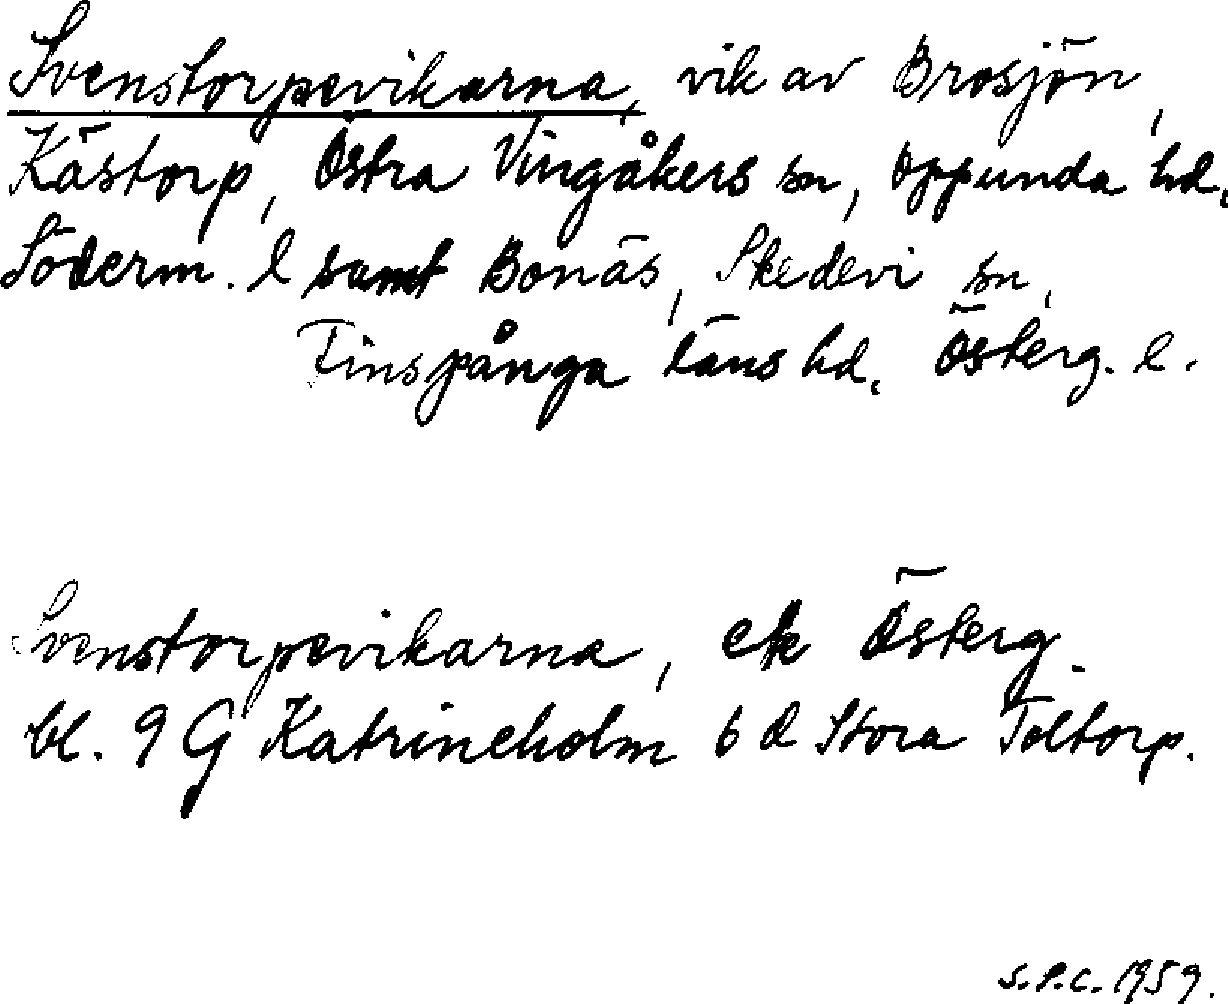 Svenstorpevikarna, vik av Brosjön,
Kästorp, Östra Vingåkers sn, Oppunda hd,
Söderm. l samt Bonäs, Skedevi sn,
Finspånga läns hd, Österg. l.
Svenstorpevikarna, ek Österg.
bl. 9 G Katrineholm 6 d Stora Toltorp.
S.P.C. 1959.